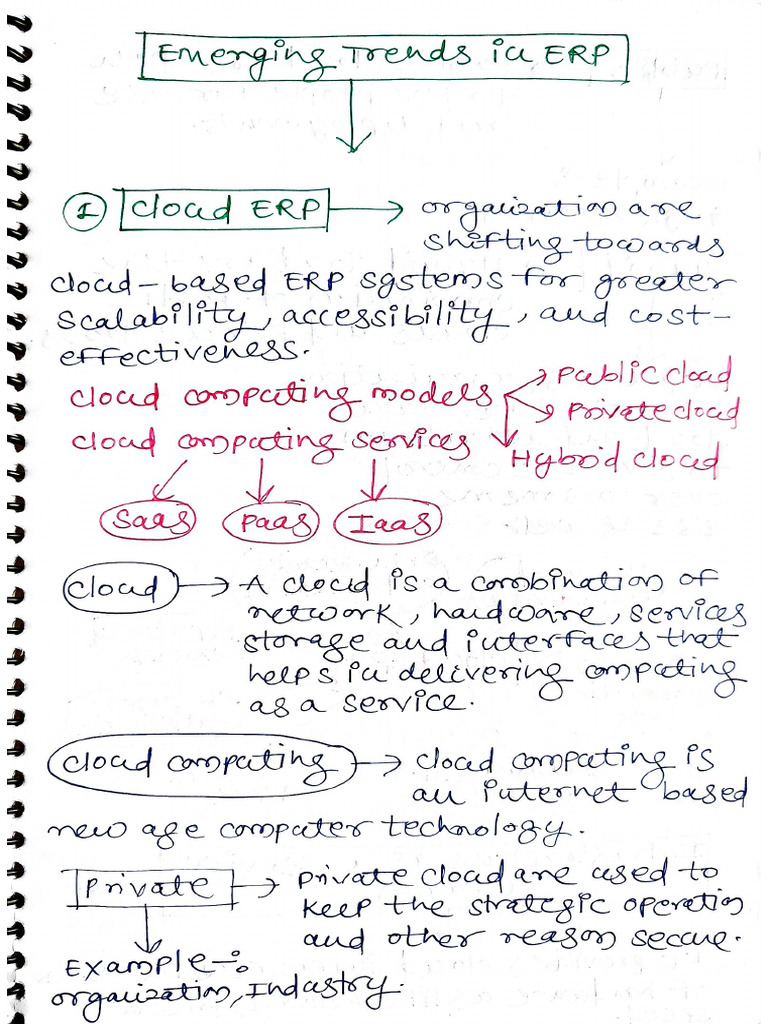 Emerging Trends in ERP
1 Cloud ERP → organization are
shifting towards
cloud-based ERP systems for greater
scalability, accessibility, and cost-
effectiveness.
cloud computing models → Public cloud
→ Private cloud
cloud computing services Hybrid cloud
SaaS PaaS IaaS
Cloud → A cloud is a combination of
network, hardware, services
storage and interfaces that
helps in delivering computing
as a service.
cloud computing → cloud computing is
an internet based
new age computer technology.
Private → Private cloud are used to
keep the strategic operation
and other reason secure.
Example -:
organization, Industry.